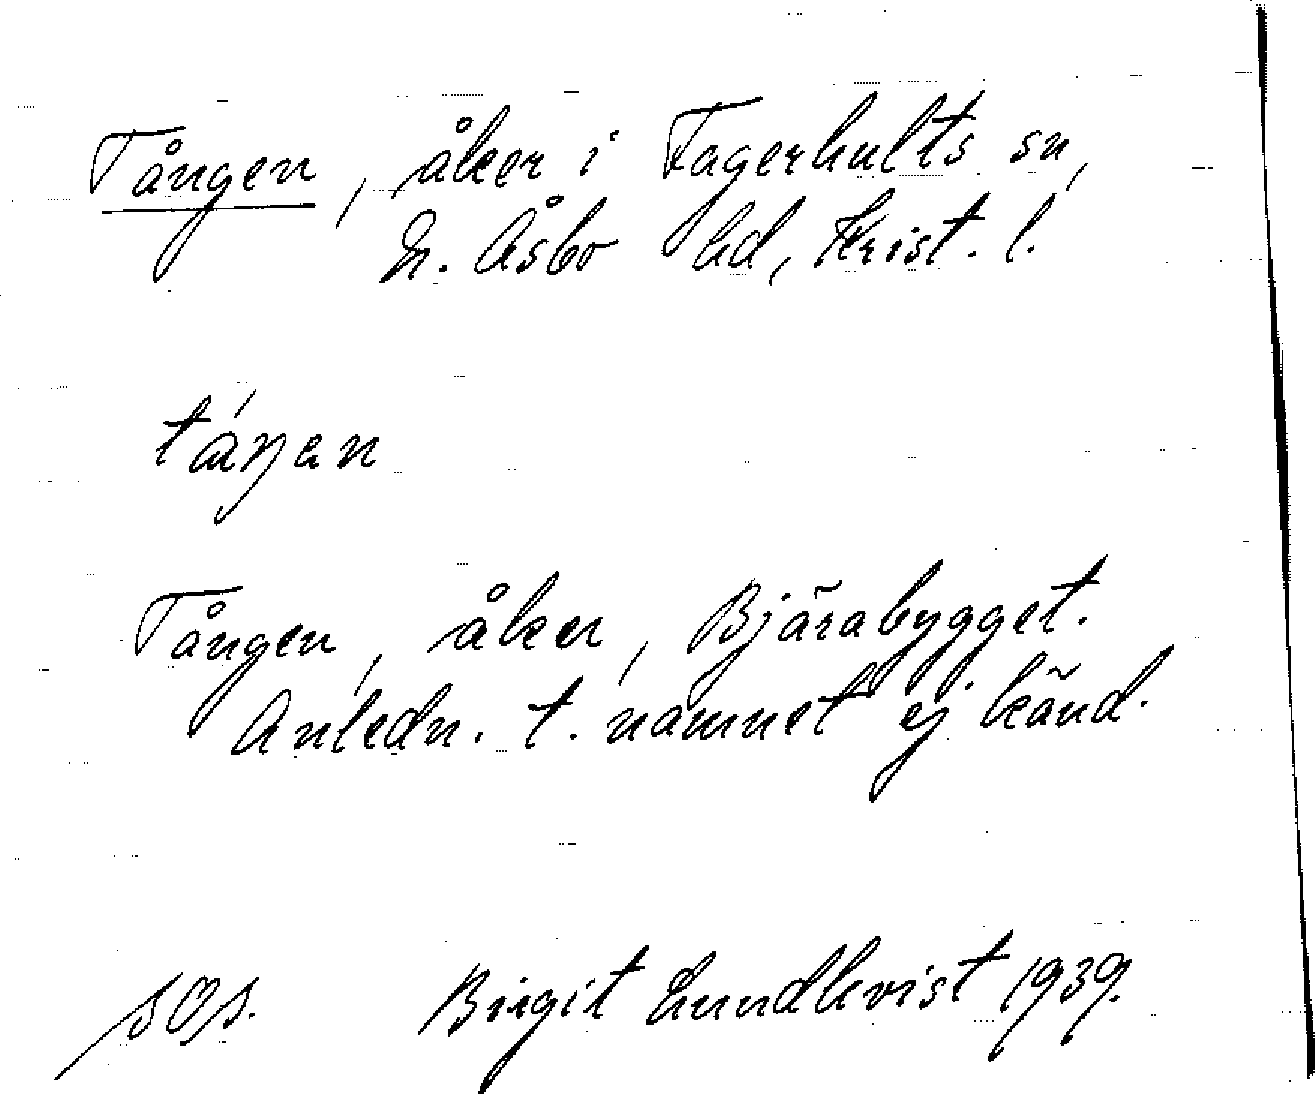 Tången, åker i Fagerhults sn,
N. Åsbo hd, Krist. l.
táŋen
Tången, åker, Bjärabygget.
Anledn. t. namnet ej känd.
Birgit Lundkvist 1939.